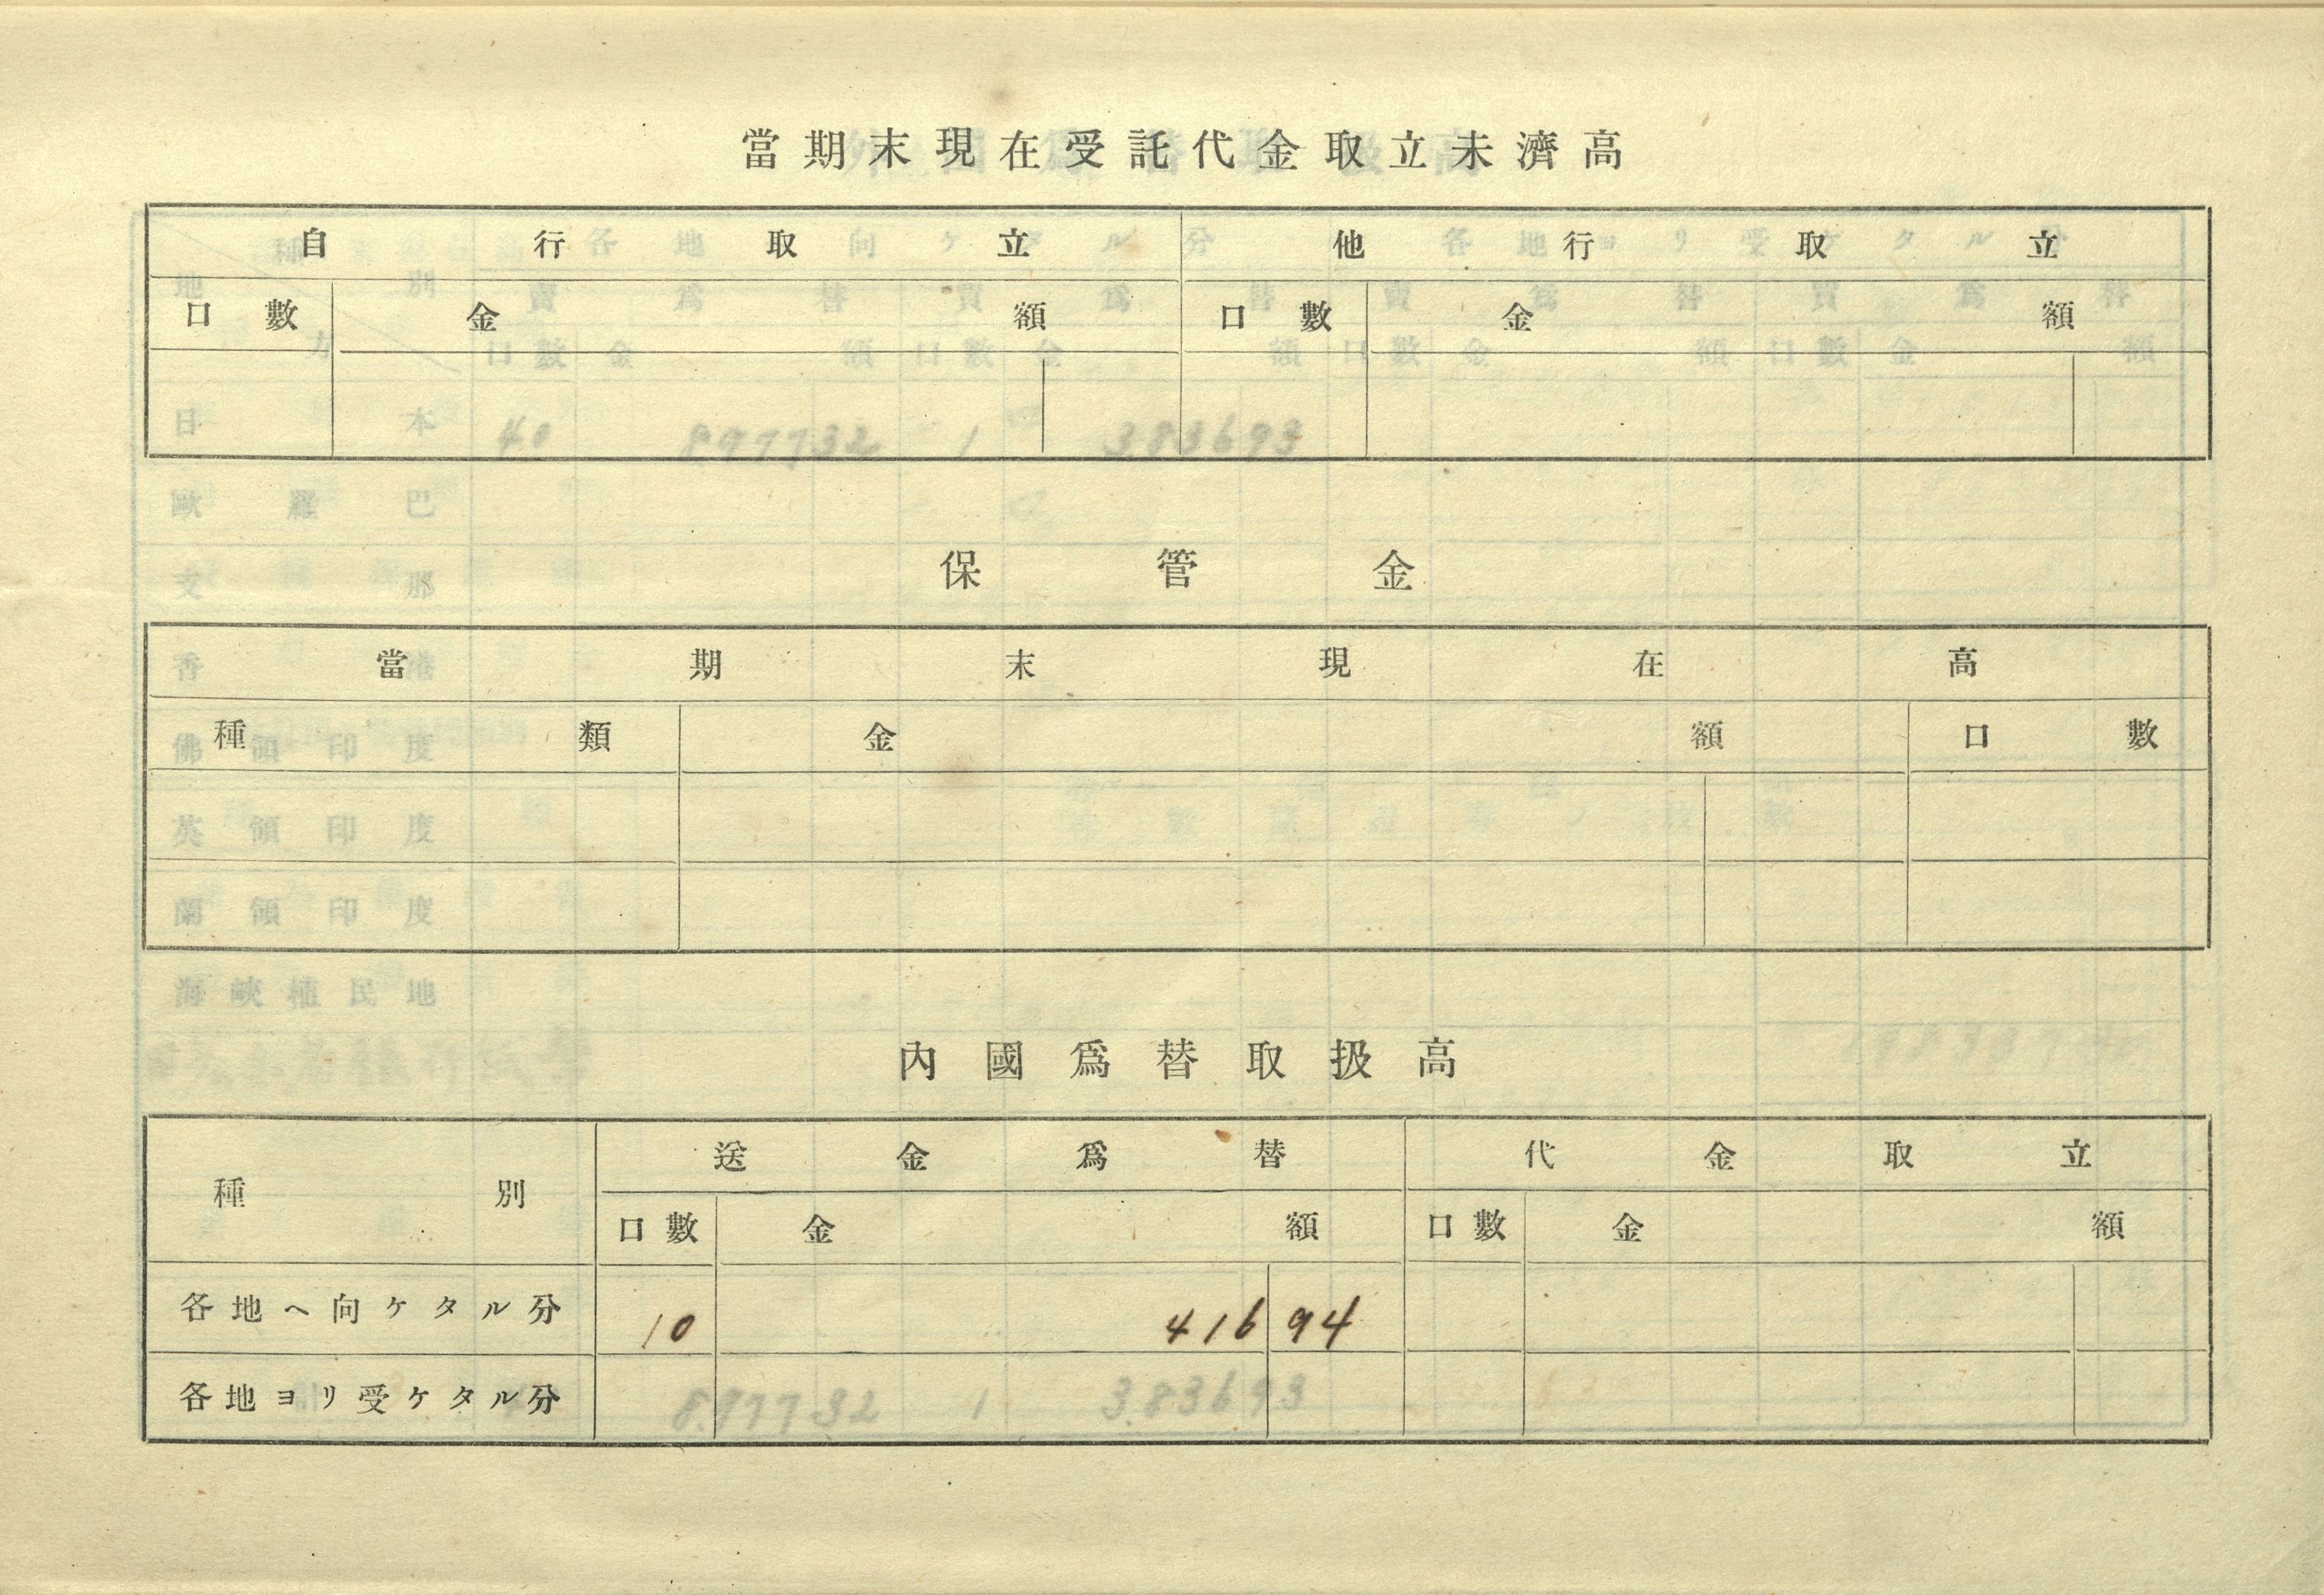 當期末現在受託代金取立未濟高
自行取立 他行取立
口數 金額 口數 金額
保管金
當期末現在高
種類 金額 口數
內國爲替取扱高
種別 送金爲替 代金取立
口數 金額 口數 金額
各地ヘ向ケタル分 10 416 94
各地ヨリ受ケタル分